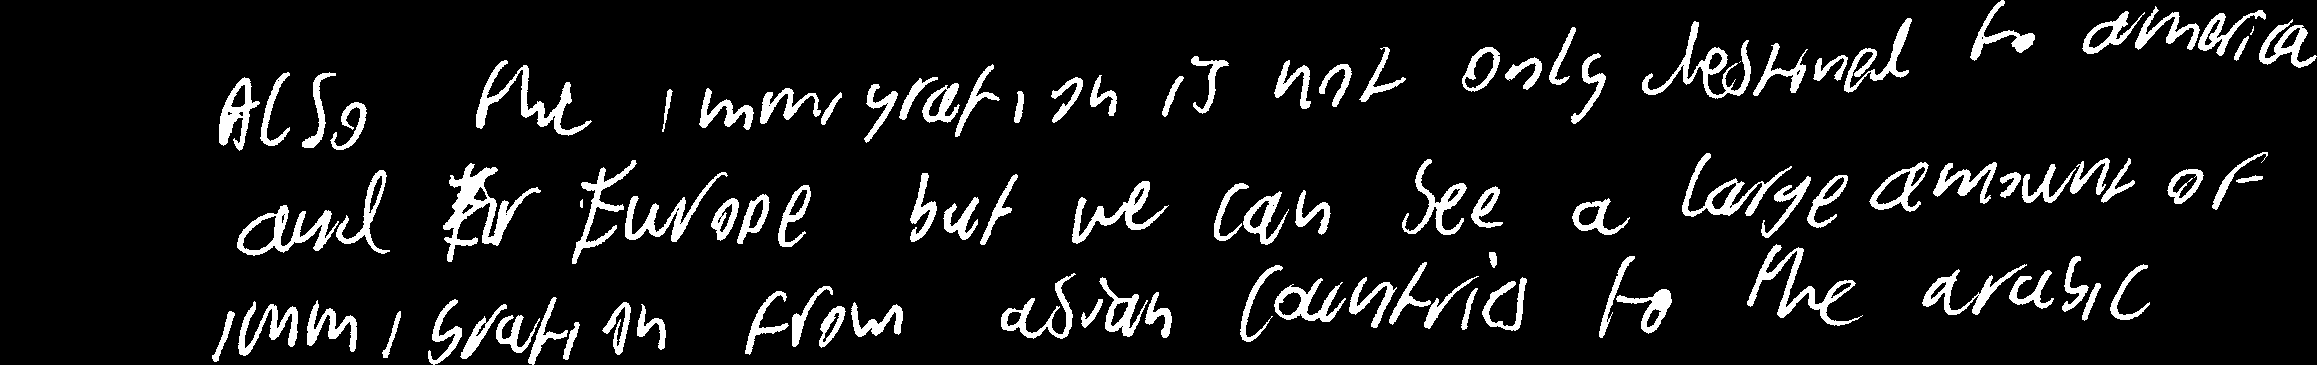 Also the immigration is not only destined to america
and Europe but we can see a large amount of
immigration from asian countries to the arabic